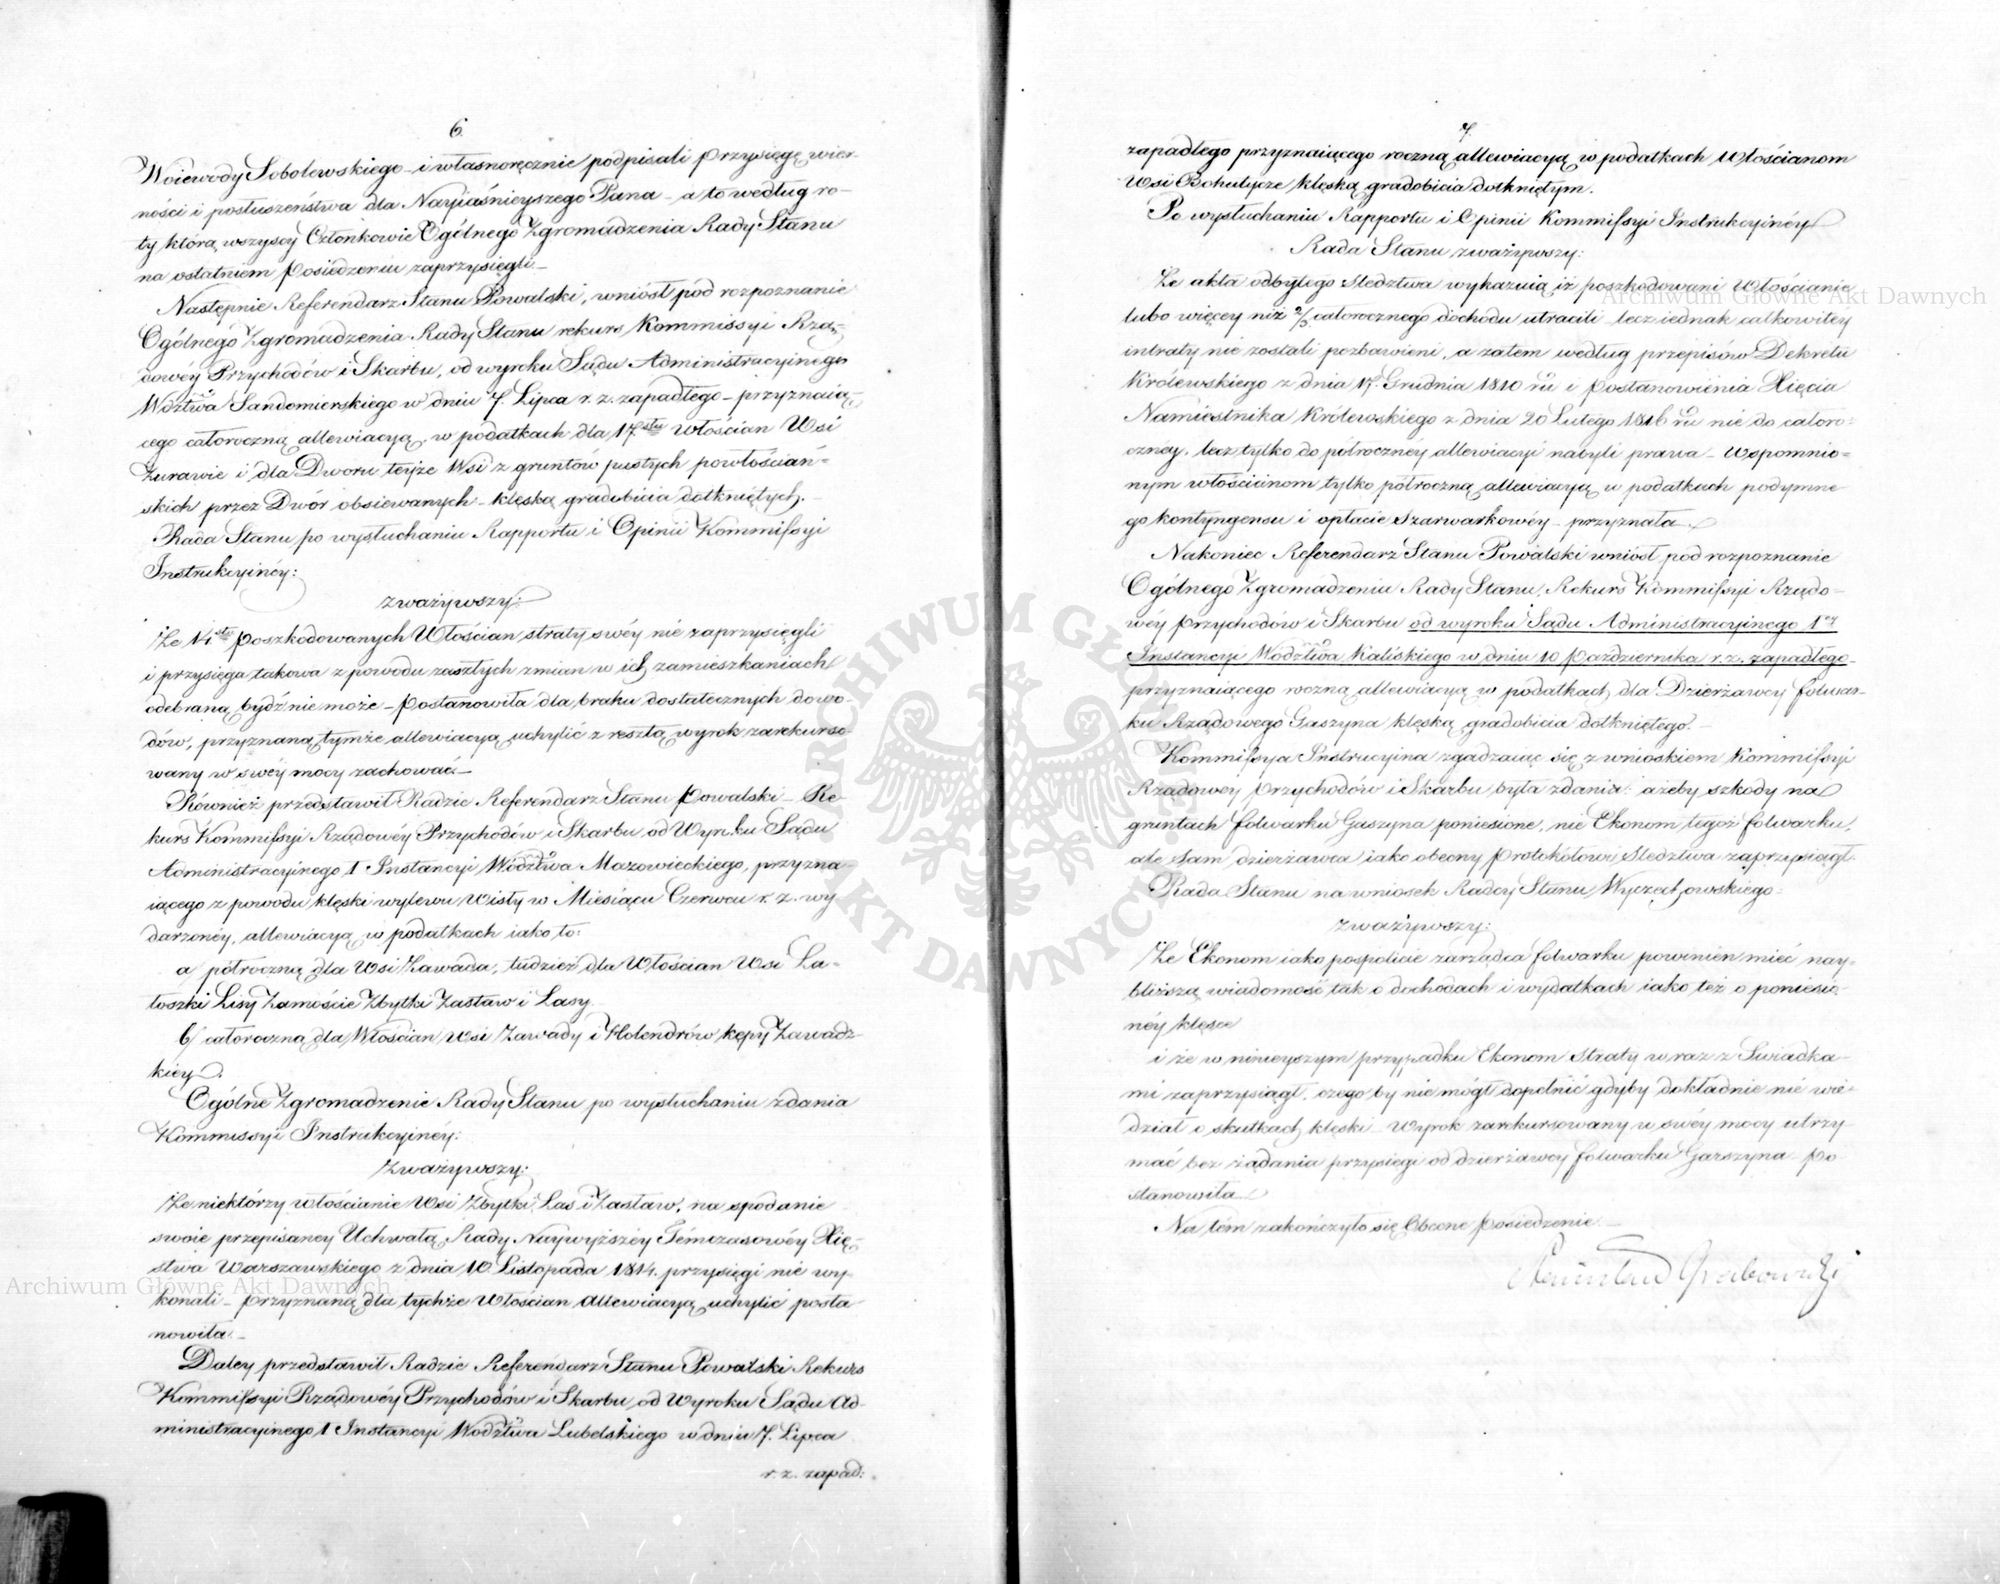 6.
Woiewody Sobolewskiego – i własnoręcznie podpisali Przysięgę wier-
ności i posłuszeństwa dla Nayiaśnieyszego Pana – a to według ro-
ty którą wszyscy Członkowie Ogólnego Zgromadzenia Rady Stanu
na ostatniem Posiedzeniu zaprzysięgli –
Następnie Referendarz Stanu Powalski, wniósł pod rozpoznanie
Ogólnego Zgromadzenia Rady Stanu rekurs Kommissyi Rzą-
dowéy Przychodów i Skarbu, od wyroku Sądu Administracyinego
Wdztwa Sandomierskiego w dniu 7. Lipca r. z. zapadłego – przyznaią-
cego całoroczną allewiacyą w podatkach dla 17stu Włościan Wsi
Żurawie i dla Dworu teyże Wsi z gruntów pustych powłościań-
skich przez Dwór obsiewanych – klęską gradobicia dotkniętych. –
Rada Stanu po wysłuchaniu Rapportu i Opinii Kommissyi
Instrukcyinéy:
zważywszy:
Że 14stu Poszkodowanych Włościan straty swéy nie zaprzysięgli
i przysięga takowa z powodu zaszłych zmian w ich zamieszkaniach
odebraną bydź nie może – Postanowiła dla braku dostatecznych dowo-
dów, przyznaną tymże allewiacyą uchylić z resztą wyrok zarekurso-
wany w swéy mocy zachować –
Również przedstawił Radzie Referendarz Stanu Powalski – Re-
kurs Kommissyi Rządowéy Przychodów i Skarbu od Wyroku Sądu
Administracyinego 1 Instancyi Wództwa Mazowieckiego, przyzna-
iącego z powodu klęski wylewu Wisły w Miesiącu Czerwcu r. z. wy
darzonéy, allewiacyą w podatkach iako to:
a półroczną dla Wsi Zawada, tudzież dla Włościan Wsi La-
toszki Lisy Zamoście Zbytki Zastaw i Lasy
b/ całoroczną dla Włościan Wsi Zawady i Holendrów kępy Zawadz-
kiey.
Ogólne Zgromadzenie Rady Stanu po wysłuchaniu zdania
Kommissyi Instrukcyinéy:
Zważywszy:
Że niektórzy włościanie Wsi Zbytki, Las i Zastaw, na spodanie
swoie przepisaney Uchwałą Rady Naywyższéy Témczasowéy Xię-
stwa Warszawskiego z dnia 10 Listopada 1814. przysięgi nie wy-
konali – Przyznaną dla tychże Włościan allewiacyą uchylić posta
nowiła –
Daley przedstawił Radzie Referendarz Stanu Powalski Rekurs
Kommissyi Rządowéy Przychodów i Skarbu, od Wyroku Sądu Ad-
ministracyinego 1 Instancyi Wodztwa Lubelskiego w dniu 7. Lipca
r. z. zapad:
7.
zapadłego przyznaiącego roczną allewiacyą w podatkach Włościanom
Wsi Bohutycze klęską gradobicia dotkniętym.
Po wysłuchaniu Rapportu i Opinii Kommissyi Instrukcyinéy
Rada Stanu zważywszy:
Że akta odbytego śledztwa wykazuią iż poszkodowani Włościanie
lubo więcey niż 2/3 całorocznego dochodu utracili lecz iednak całkowitey
intraty nie zostali pozbawieni, a zatem według przepisów Dekretu
Królewskiego z dnia 17. Grudnia 1810 ru i postanowienia Xięcia
Namiestnika Królewskiego z dnia 20 Lutego 1816 ru nie do całoro-
cznéy, lecz tylko do półrocznéy allewiacyi nabyli prawa – Wspomnio-
nym włościanom tylko półroczną allewiacyą w podatkach podymne
go kontyngensu i opłacie Szarwarkowéy – przyznała –
Nakoniec Referendarz Stanu Powalski wniósł pod rozpoznanie
Ogólnego Zgromadzenia Rady Stanu, Rekurs Kommissyi Rządo-
wéy Przychodów i Skarbu od wyroku Sądu Administracyinego 1éy
Instancyi Wodztwa Kaliskiego w dniu 10 Października r. z. zapadłego –
przyznaiącego roczną allewiacyą w podatkach dla Dzierżawcy folwar-
ku Rządowego Gaszyna klęską gradobicia dotkniętego –
Kommissya Instrucyina zgadzaiąc się z wnioskiem Kommissyi
Rządowey Przychodów i Skarbu była zdania: ażeby szkody na
gruntach folwarku Gaszyna poniesione, nie Ekonom tegoż folwarku,
ale sam dzierżawca iako obecny Protokółowi śledztwa zaprzysiągł.
Rada Stanu na wniosek Radcy Stanu Wyczechowskiego –
zważywszy:
Że Ekonom iako pospolicie zarządca folwarku powinien mieć nay-
bliższą wiadomość tak o dochodach i wydatkach iako też o ponieśio-
néy klęsce
i że w ninieyszym przypadku Ekonom straty wraz z Swiadka-
mi zaprzysiągł, czego by nie mógł dopełnić gdyby dokładnie nie wie-
dział o skutkach klęski – Wyrok zarekursowany w swéy mocy utrzy
mać bez żądania przysięgi od dzierżawcy folwarku Garszyna – po-
stanowiła –
Na tém zakończyło się Obecne Posiedzenie –
Grabowski
Archiwum Główne Akt Dawnych
Archiwum Główne Akt Dawnych
ARCHIWUM GŁÓWNE AKT DAWNYCH